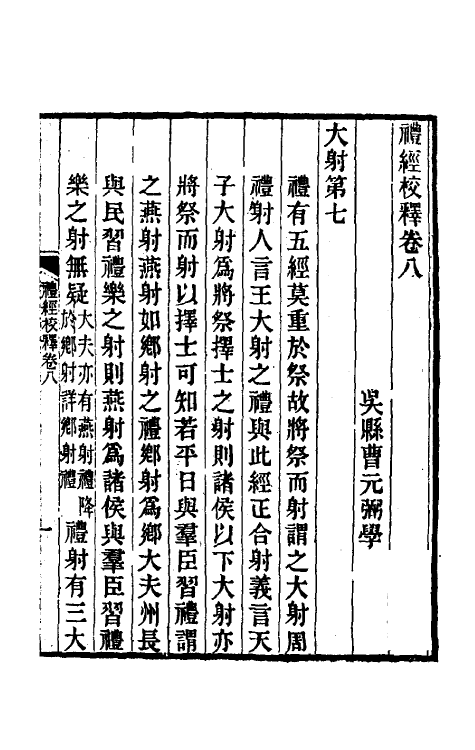 禮經校釋卷八
吳縣曹元弼學
大射第七
禮有五經莫重於祭故將祭而射謂之大射周
禮射人言王大射之禮與此經正合射義言天
子大射爲將祭擇士之射則諸侯以下大射亦
將祭而射以擇士可知若平日與羣臣習禮謂
之燕射燕射如鄉射之禮鄉射爲鄉大夫州長
與民習禮樂之射則燕射爲諸侯與羣臣習禮
樂之射無疑大夫亦有燕射禮降於鄉射詳鄉射禮禮射有三大
禮經校釋卷八
一